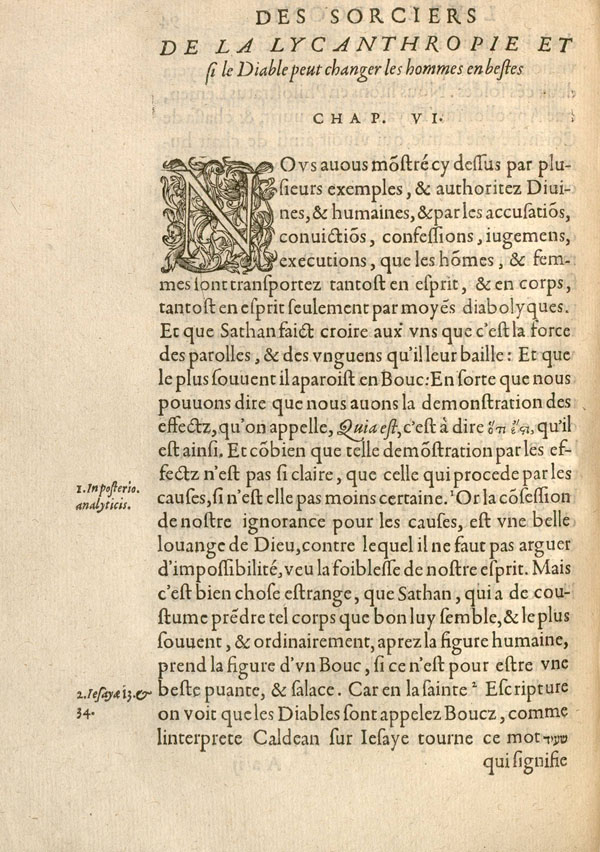 DES SORCIERS
DE LA LYCANTHROPIE ET
si le Diable peut changer les hommes en bestes
CHAP. VI.
NOvs auous mõstré cy dessus par plu-
sieurs exemples, & authoritez Diui-
nes, & humaines, & par les accusatiõs,
conuictiõs, confessions, iugemens,
executions, que les hõmes, & fem-
mes sont transportez tantost en esprit, & en corps,
tantost en esprit seulement par moyẽs diabolyques.
Et que Sathan faict croire aux vns que c'est la force
des parolles, & des vnguens qu'il leur baille: Et que
le plus souuent il aparoist en Bouc: En sorte que nous
pouuons dire que nous auons la demonstration des
effectz, qu'on appelle, Quia est, c'est à dire qu'il
est ainsi. Et cõbien que telle demõstration par les ef-
fectz n'est pas si claire, que celle qui procede par les
1. In posterio.
analyticis.
causes, si n'est elle pas moins certaine. 1 Or la cõfession
de nostre ignorance pour les causes, est vne belle
louange de Dieu, contre lequel il ne faut pas arguer
d'impossibilité, veu la foiblesse de nostre esprit. Mais
c'est bien chose estrange, que Sathan, qui a de cou-
stume prẽdre tel corps que bon luy semble, & le plus
souuent, & ordinairement, aprez la figure humaine,
prend la figure d'vn Bouc, si ce n'est pour estre vne
2. Iesayæ 13. &
34.
beste puante, & salace. Car en la sainte 2 Escripture
on voit que les Diables sont appelez Boucz, comme
linterprete Caldean sur Iesaye tourne ce mot שעיר
qui signifie